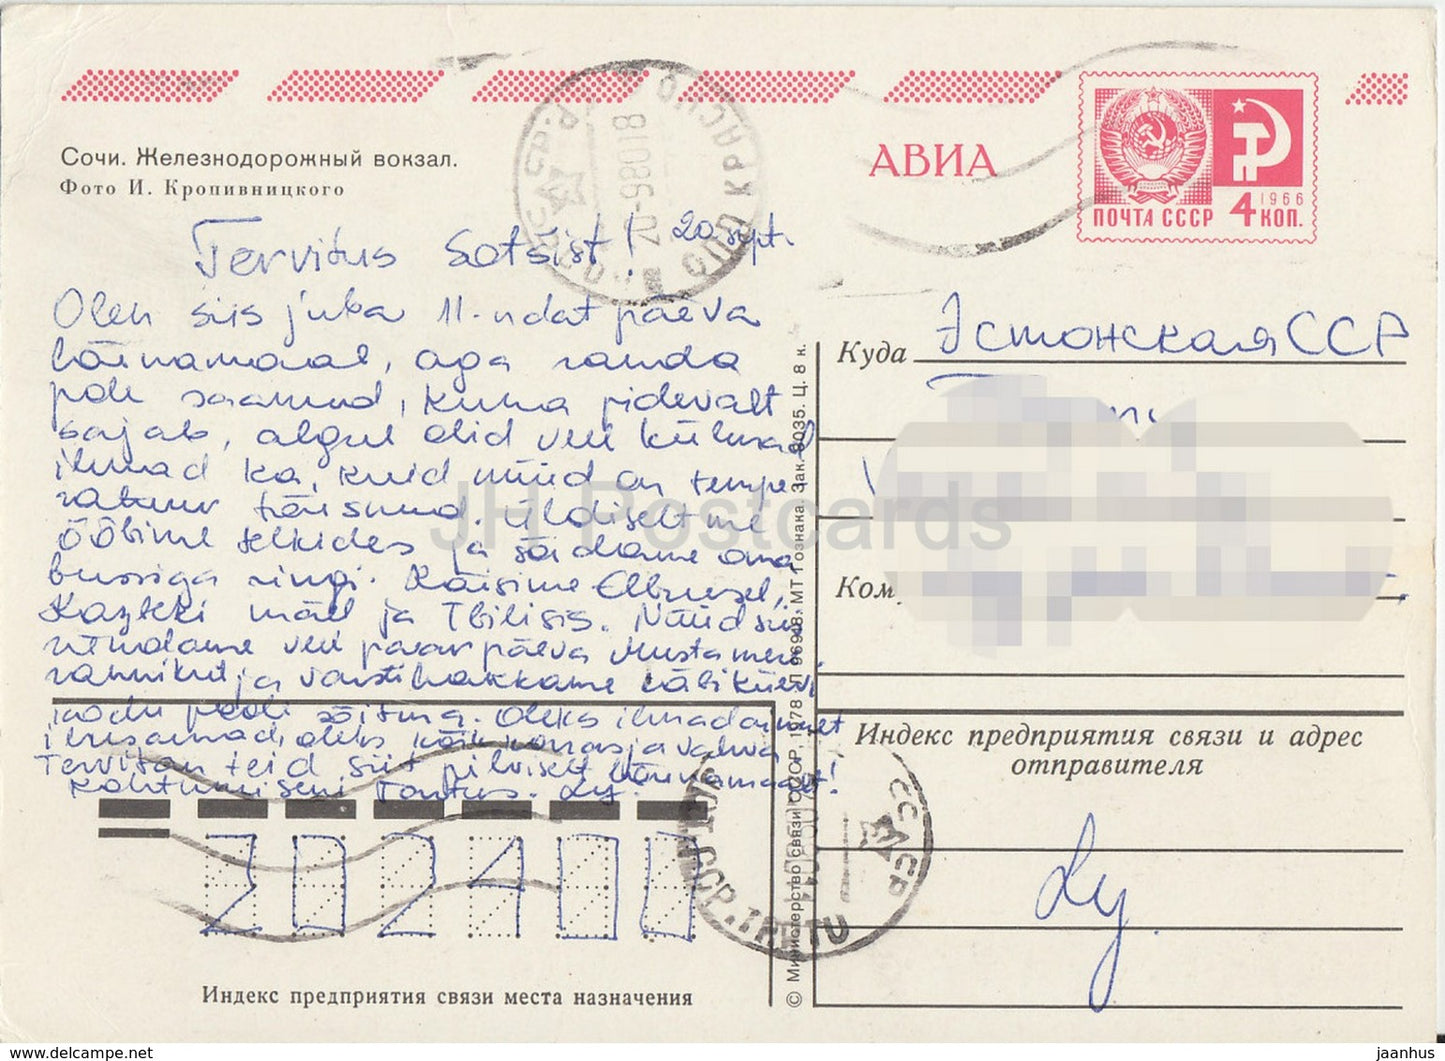 Сочи. Железнодорожный вокзал.
Фото И. Кропивницкого
АВИА
1966
ПОЧТА СССР 4 КОП.
Tervitus Sotšist! 20 sept.
Olen siis juba 11-ndat päeva
lõunamaal, aga randa
pole saanud, kuna pidevalt
sajab, algul olid veel külmad
ilmad ka, kuid nüüd on tempe-
ratuur tõusnud. Üldiselt me
ööbime telkides ja sõidame oma
bussiga ringi. Käisime Elbrusel,
Kazbeki mäel ja Tbilisis. Nüüd siis
rändame veel paar päeva Musta mere
rannikut ja varsti hakkame läbi Kiievi
kodu poole sõitma. Oleks ilmad ainult
ilusamad, oleks kõik korras ja vahva
Tervitan teid siit pilviselt lõunamaalt!
Kohtumiseni Tartus. Ly.
Куда Эстонская ССР
Ком
Индекс предприятия связи и адрес
отправителя
Ly.
202400
Индекс предприятия связи места назначения
© Министерство связи СССР, 1978 МТ Гознака Зак. 8035. Ц. 8 к.
СССР
JH Postcards
www.delcampe.net
jaanhus